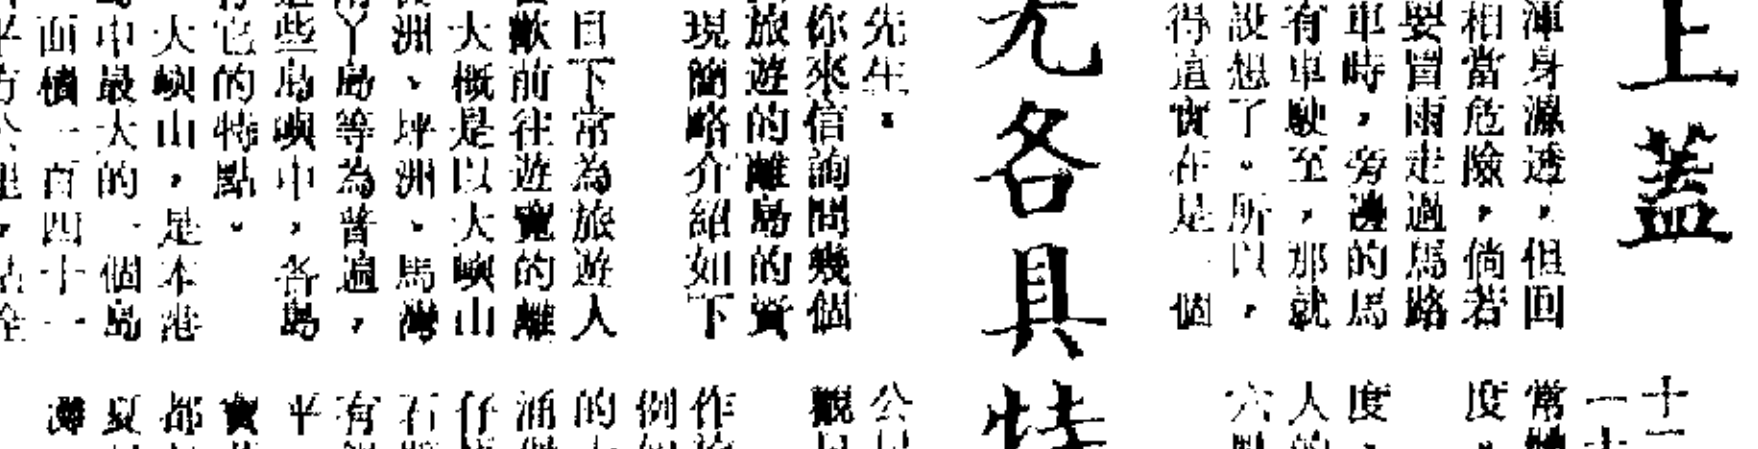 上蓋
渾身濕透，但回
相當危險，倘若
要冒雨走過馬路
車時，旁邊的馬
有車駛至，那就
設想了。所以，
得這實在是一個
十二
一十
常
度
度，
人的
六點
光各具特
先生：
你來信詢問幾個
旅遊的離島的資
現簡略介紹如下
目下常為旅遊人
歡前往遊覽的離
大概是以大嶼山
洲、坪洲、馬灣
丫島等為普遍，
這些島嶼中，各島
有它的特點。
大嶼山，是本港
島中最大的一個島
面積一百四十一
平方公里，佔全
公
觀
作
例
的
涌
仔
石
有
平
實
都
夏
灘